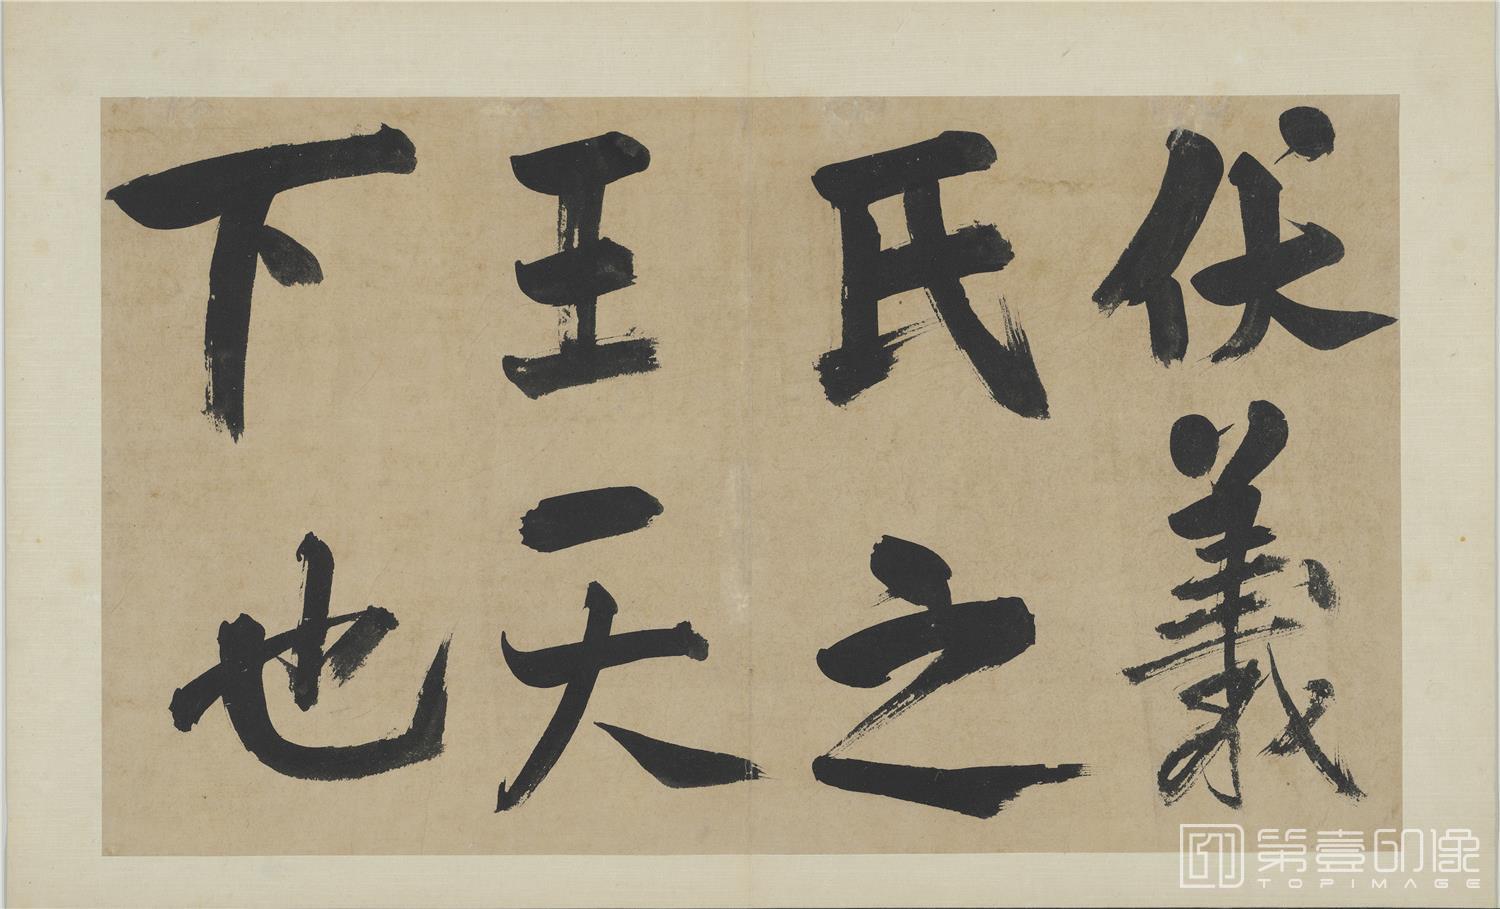 伏羲
氏之
王天
下也
第壹印像
TOPIMAGE